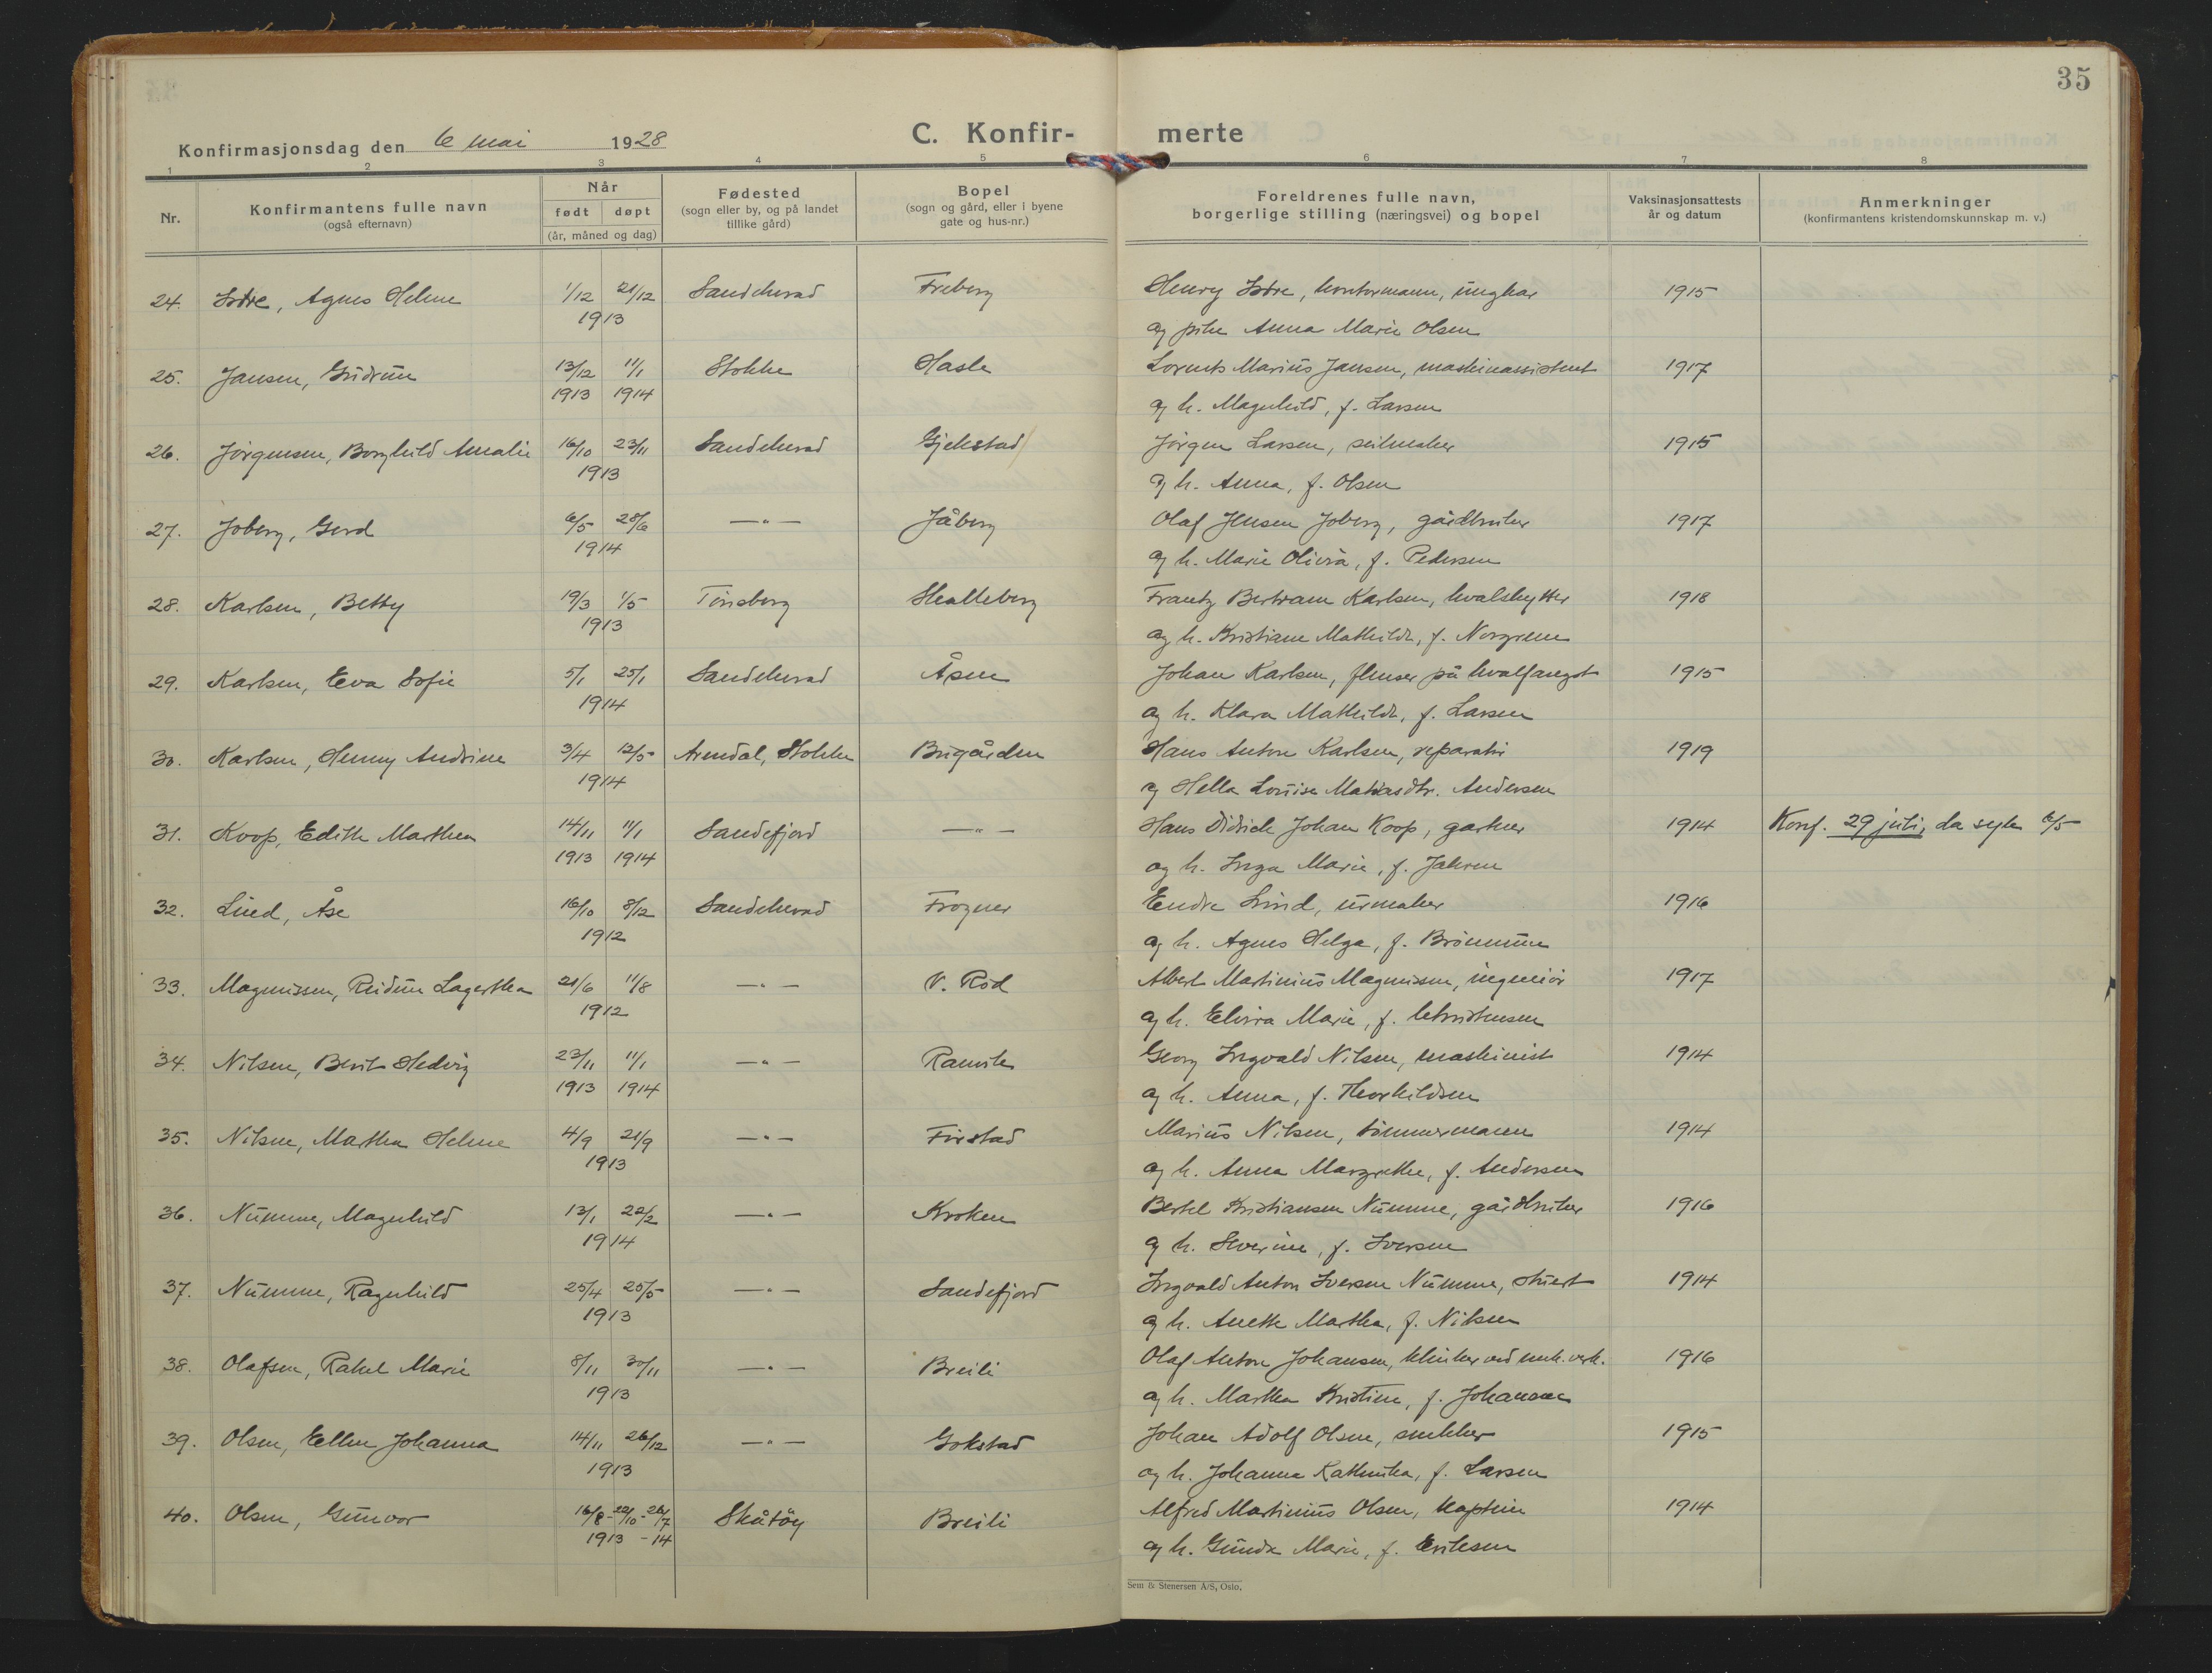 35
Konfirmasjonsdag den 6 mai 1928
C. Konfir- merte
1 2 3 4 5 6 7 8
Nr.
Konfirmantens fulle navn
(også efternavn)
Når
født døpt
(år, måned og dag)
Fødested
(sogn eller by, og på landet
tillike gård)
Bopel
(sogn og gård, eller i byene
gate og hus-nr.)
Foreldrenes fulle navn,
borgerlige stilling (næringsvei) og bopel
Vaksinasjonsattests
år og datum
Anmerkninger
(konfirmantens kristendomskunnskap m. v.)
24. Istre, Agnes Helene 1/12 21/12 Sandeherad Freberg Henry Istre, kontormann, ungkar 1915
1913 og pike Anna Marie Olsen
25. Jansen, Gudrun 13/12 11/1 Stokke Hasle Lorents Marius Jansen, maskinassistent 1917
1913 1914 og h. Magnhild, f. Larsen
26. Jørgensen, Borghild Amalie 16/10 23/11 Sandeherad Gjekstad Jørgen Larsen, seilmaker 1915
1913 og h. Anna, f. Olsen
27. Joberg, Gerd 6/5 28/6 —"— Jåberg Olaf Jensen Joberg, gårdbruker 1917
1914 og h. Marie Olivia, f. Pedersen
28. Karlsen, Betty 19/3 1/5 Tønsberg Skalleberg Frantz Bertram Karlsen, hvalskytter 1918
1913 og h. Kristiane Mathilde, f. Norgreen
29. Karlsen, Eva Sofie 5/1 25/1 Sandeherad Åsen Johan Karlsen, flenser på hvalfangst 1915
1914 og h. Klara Mathilde, f. Larsen
30. Karlsen, Henny Andrine 3/4 12/5 Arendal, Stokke Bugården Hans Anton Karlsen, reparatør 1919
1914 og Hella Louise Matiasdtr. Andersen
31. Koop, Edith Marthea 14/11 11/1 Sandefjord —"— Hans Didrick Johan Koop, gartner 1914 Konf. 29 juli, da syk 6/5
1913 1914 og h. Inga Marie, f. Jahren
32. Lund, Åse 16/10 8/12 Sandeherad Frogner Endre Lund, urmaker 1916
1912 og h. Agnes Helga, f. Brønmum
33. Magnussen, Reidun Lagertha 21/6 11/8 —"— V. Rød Albert Martinius Magnussen, ingeniør 1917
1912 og h. Elvira Marie, f. Christensen
34. Nilsen, Berit Hedvig 23/11 11/1 —"— Ranvik Georg Ingvald Nilsen, maskinist 1914
1913 1914 og h. Anna, f. Thorkildsen
35. Nilsen, Martha Helene 4/9 21/9 —"— Furstad Marius Nilsen, tømmermann 1914
1913 og h. Anna Margrethe, f. Andersen
36. Numme, Magnhild 13/1 22/2 —"— Kroken Bertel Kristiansen Numme, gårdbruker 1916
1914 og h. Severine, f. Iversen
37. Numme, Ragnhild 25/4 25/5 —"— Sandefjord Ingvald Anton Iversen Numme, stuert 1914
1913 og h. Anette Martha, f. Nilsen
38. Olafsen, Rakel Marie 8/11 30/11 —"— Breili Olaf Anton Johansen, klinker ved mek. verk. 1916
1913 og h. Marthea Kristine, f. Johansen
39. Olsen, Ellen Johanna 14/11 26/12 —"— Gokstad Johan Adolf Olsen, snekker 1915
1913 og h. Johanna Kathinka, f. Larsen
40. Olsen, Gunvor 16/8 - 22/10 - 26/7 Skåtøy Breili Alfred Martinius Olsen, kaptein 1914
1913 - 14 og h. Gunda Marie, f. Eriksen
Sem & Stenersen A/S, Oslo.